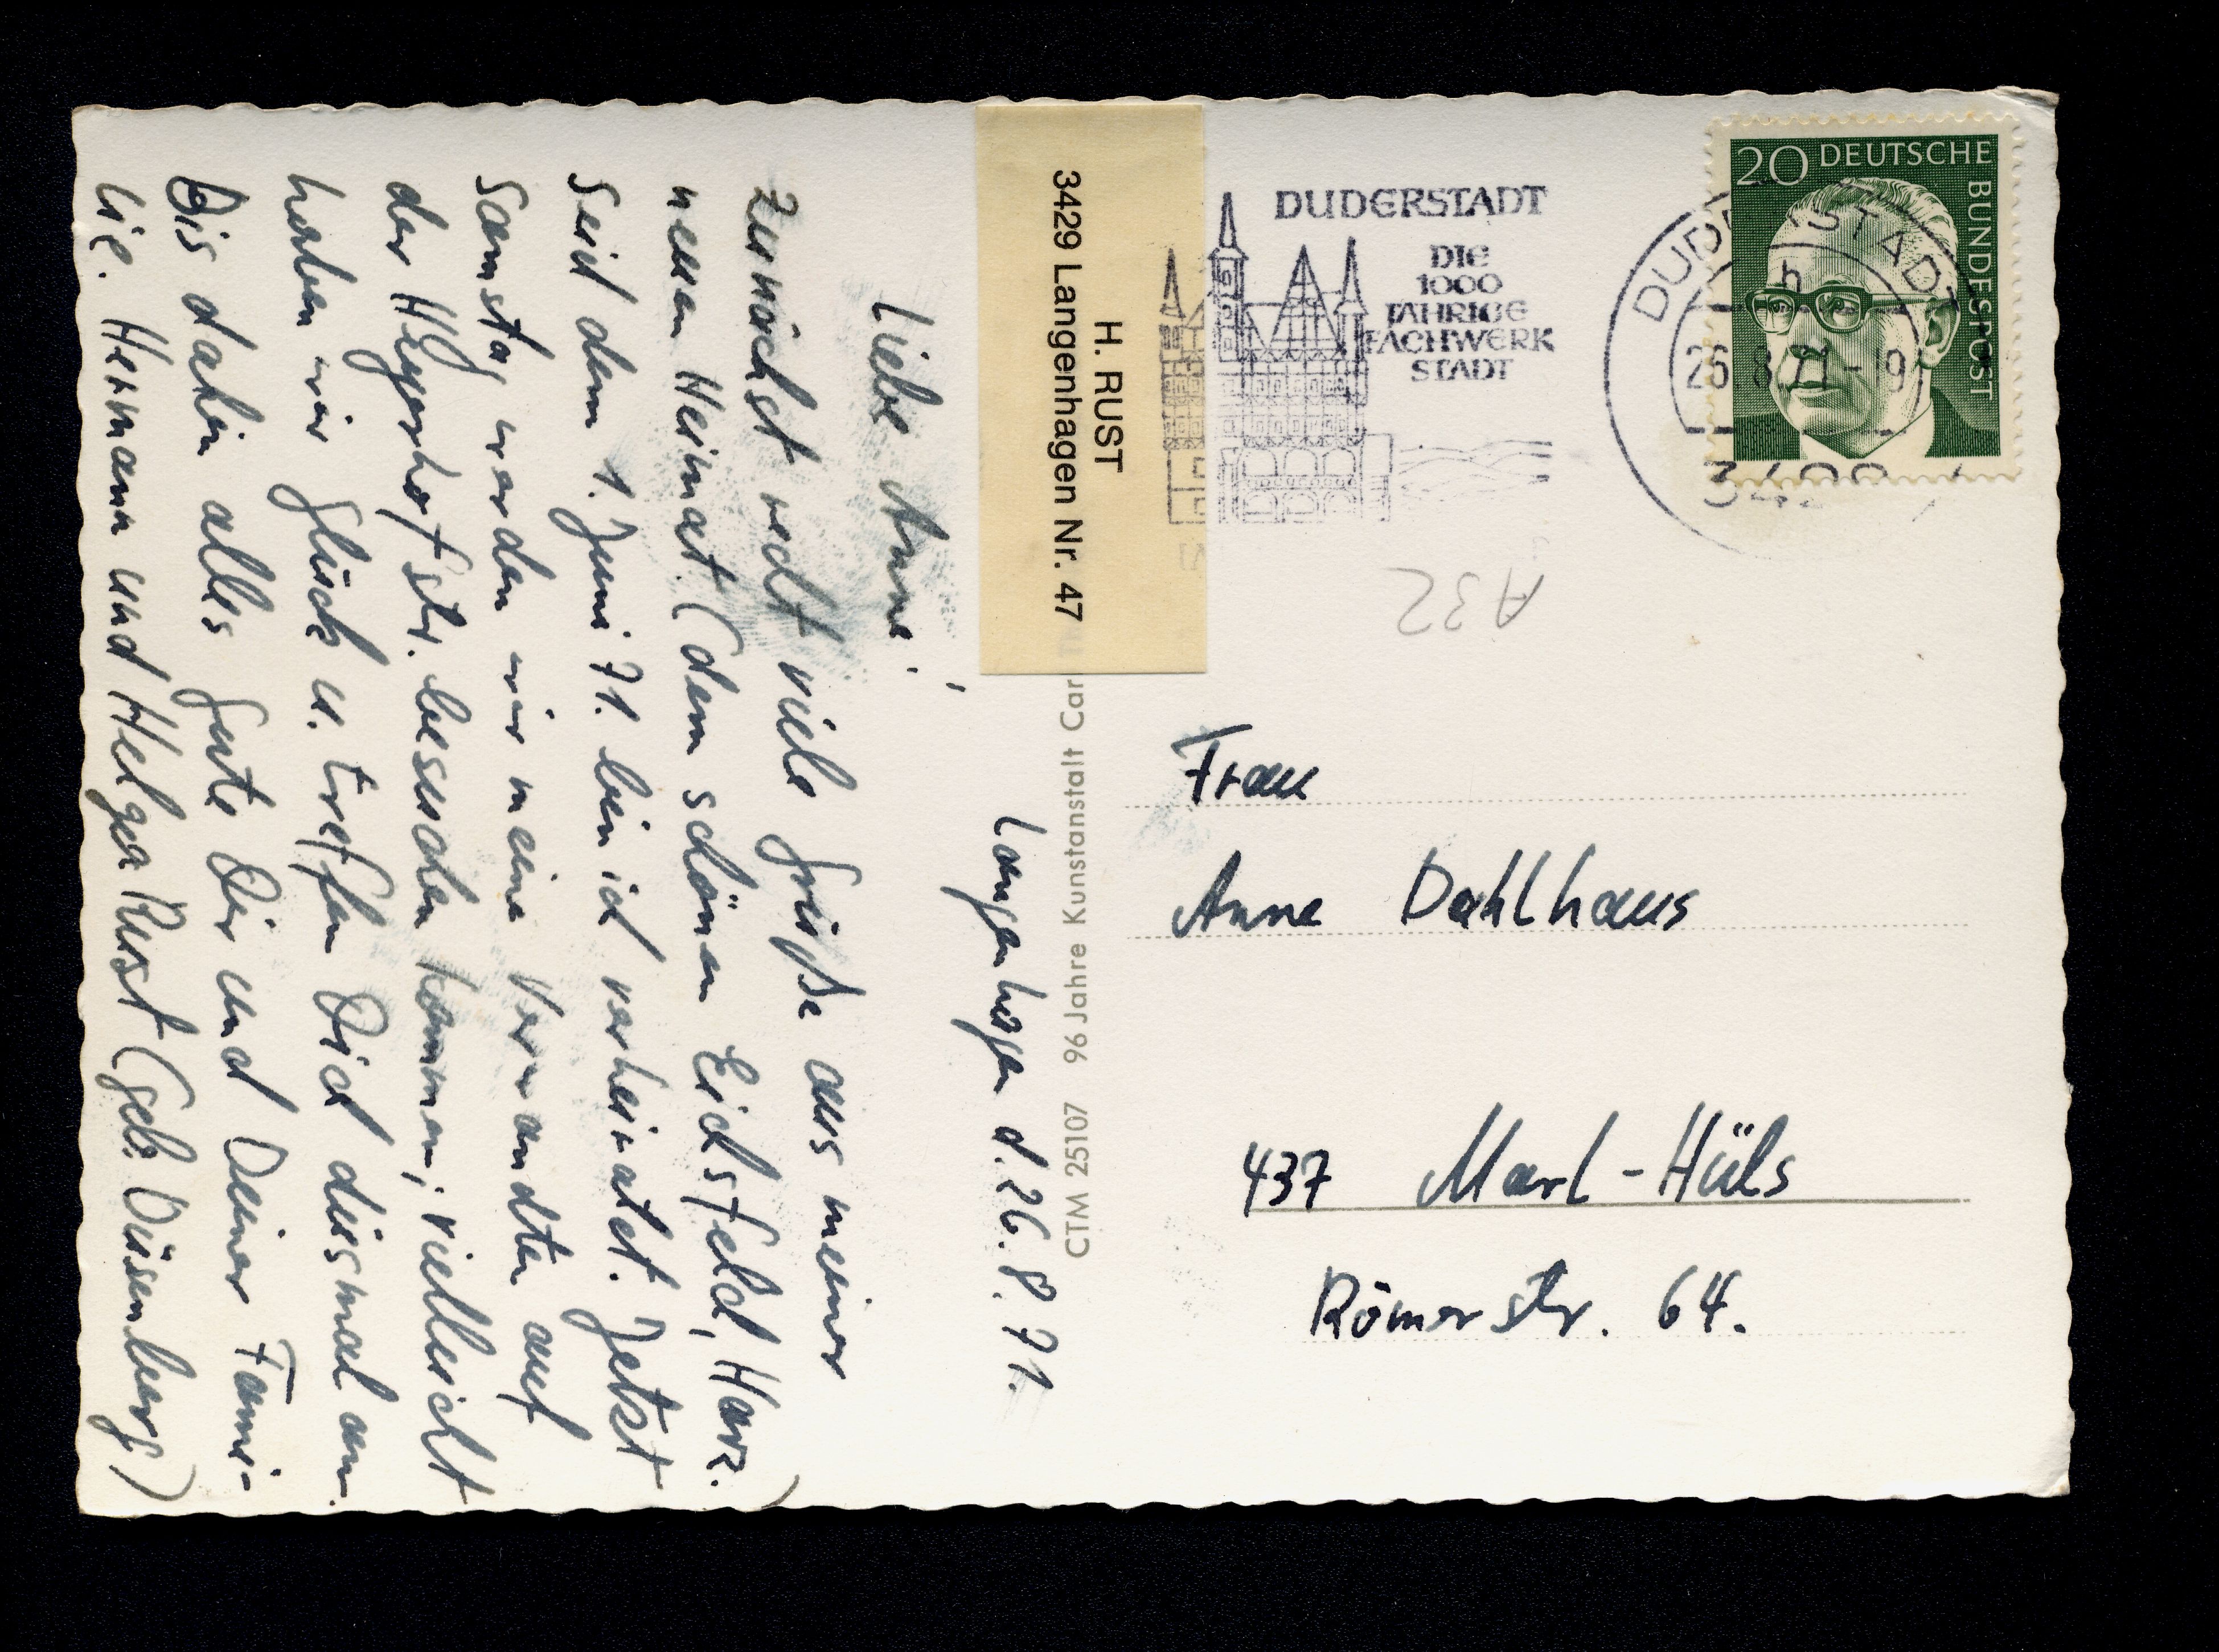 H. RUST
3429 Langenhagen Nr. 47
Langenhagen d. 26.8.71.
Liebe Anne!
Zunächst recht viele Grüße aus meiner
neuen Heimat (dem schönen Eichsfeld, Harz.)
Seit dem 1. Juni 71. bin ich verheiratet. Jetzt
Samstag werden wir meine Verwandten auf
der Hegerhofstr. besuchen kommen, vielleicht
haben wir Glück u. treffen Dich diesmal an.
Bis dahin alles Gute Dir und Deiner Fami-
lie. Hermann und Helga Rust (geb. Düsenberg)
CTM 25107 96 Jahre Kunstanstalt Car
DUDERSTADT
DIE
1000
JÄHRIGE
FACHWERK
STADT
DUDERSTADT
h
26.8.71-19
20 DEUTSCHE BUNDESPOST
A32
Frau
Anne Dahlhaus
437 Marl-Hüls
Römerstr. 64.